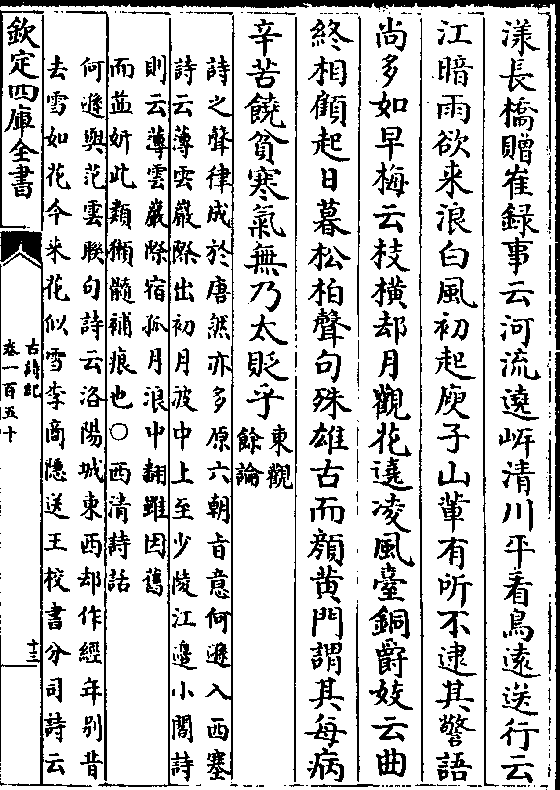 漾長橋贈崔録事云河流遶㟁清川平看鳥遠送行云
江暗雨欲来浪白風初起庾子山軰有所不逮其警語
尚多如早梅云枝横却月觀花遶凌風臺銅爵妓云曲
終相顧起日暮松柏聲句殊雄古而顔黄門謂其每病
辛苦饒貧寒氣無乃太貶乎東觀
餘論
詩之聲律成於唐然亦多原六朝㫖意何遜入西塞
詩云薄雲巖際出初月波中上至少陵江邊小閣詩
則云薄雲巖際宿孤月浪中翻雖因舊
而益妍此類獺髓補痕也○西清詩話
何遜與范雲聨句詩云洛陽城東西却作經年别昔
去雪如花今来花似雪李商隱送王校書分司詩云
欽定四庫全書
古詩紀
卷一百五十
十三